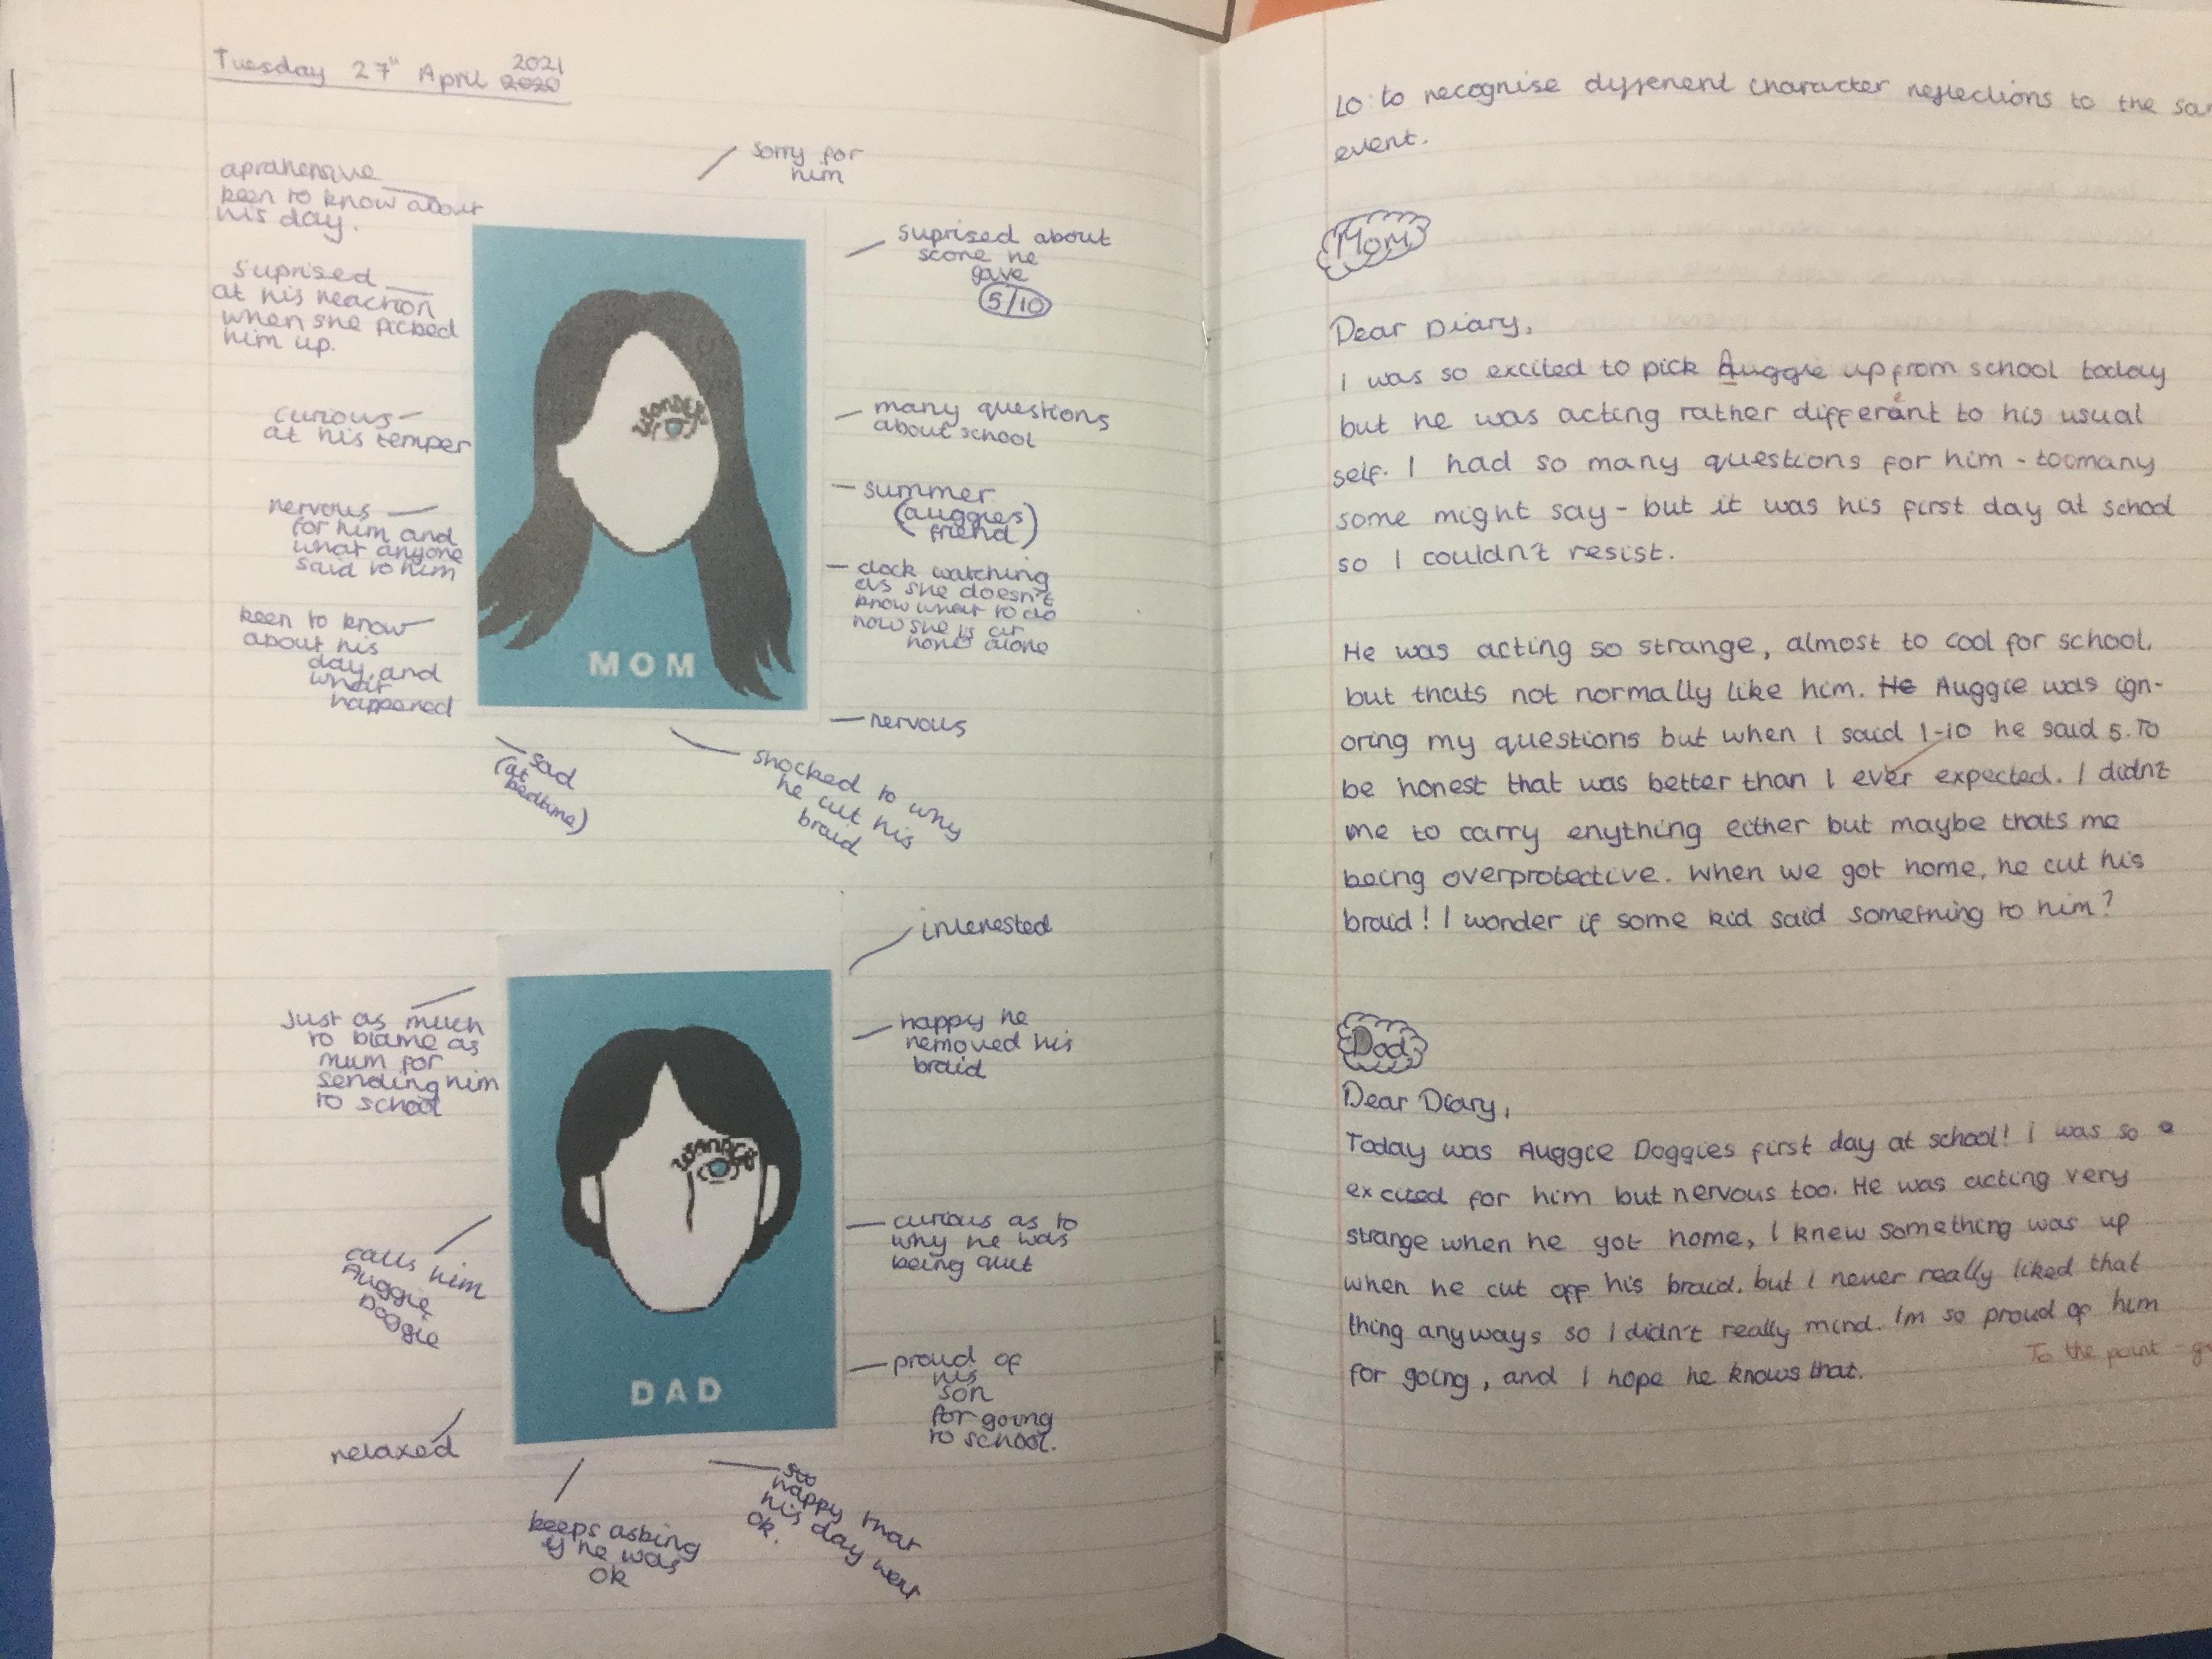 Tuesday 27th April 2020
2021
sorry for
him
aprahensive
keen to know about
his day.
suprised about
score he
gave
5/10
suprised
at his reaction
when she picked
him up.
curious
at his temper
many questions
about school
nervous
for him and
what anyone
said to him
summer
(auggies
friend)
clock watching
as she doesn't
know what to do
now she is at
home alone
keen to know
about his
day and
what
happened
wonder
MOM
nervous
sad
(at
bedtime)
shocked to why
he cut his
braid
interested
Just as much
to blame as
mum for
sending him
to school
happy he
removed his
braid
wonder
calls him
Auggie
Doggie
curious as to
why he was
being quit
DAD
proud of
his
son
for going
to school.
relaxed
keeps asking
if he was
ok
so
happy that
his day went
ok.
LO: to recognise different character reflections to the
event.
Mom
Dear Diary,
I was so excited to pick Auggie up from school today
but he was acting rather different to his usual
self. I had so many questions for him - too many
some might say - but it was his first day at school
so I couldn't resist.
He was acting so strange, almost to cool for school,
but thats not normally like him. He Auggie was ign-
oring my questions but when I said 1-10 he said 5. To
be honest that was better than I ever expected. I didn't
me to carry enything either but maybe thats me
being overprotective. When we got home, he cut his
braid! I wonder if some kid said something to him?
Dad
Dear Diary,
Today was Auggie Doggies first day at school! i was so
excited for him but nervous too. He was acting very
strange when he got home, I knew something was up
when he cut off his braid, but I never really liked that
thing anyways so I didn't really mind. Im so proud of him
for going, and I hope he knows that.
To the point -